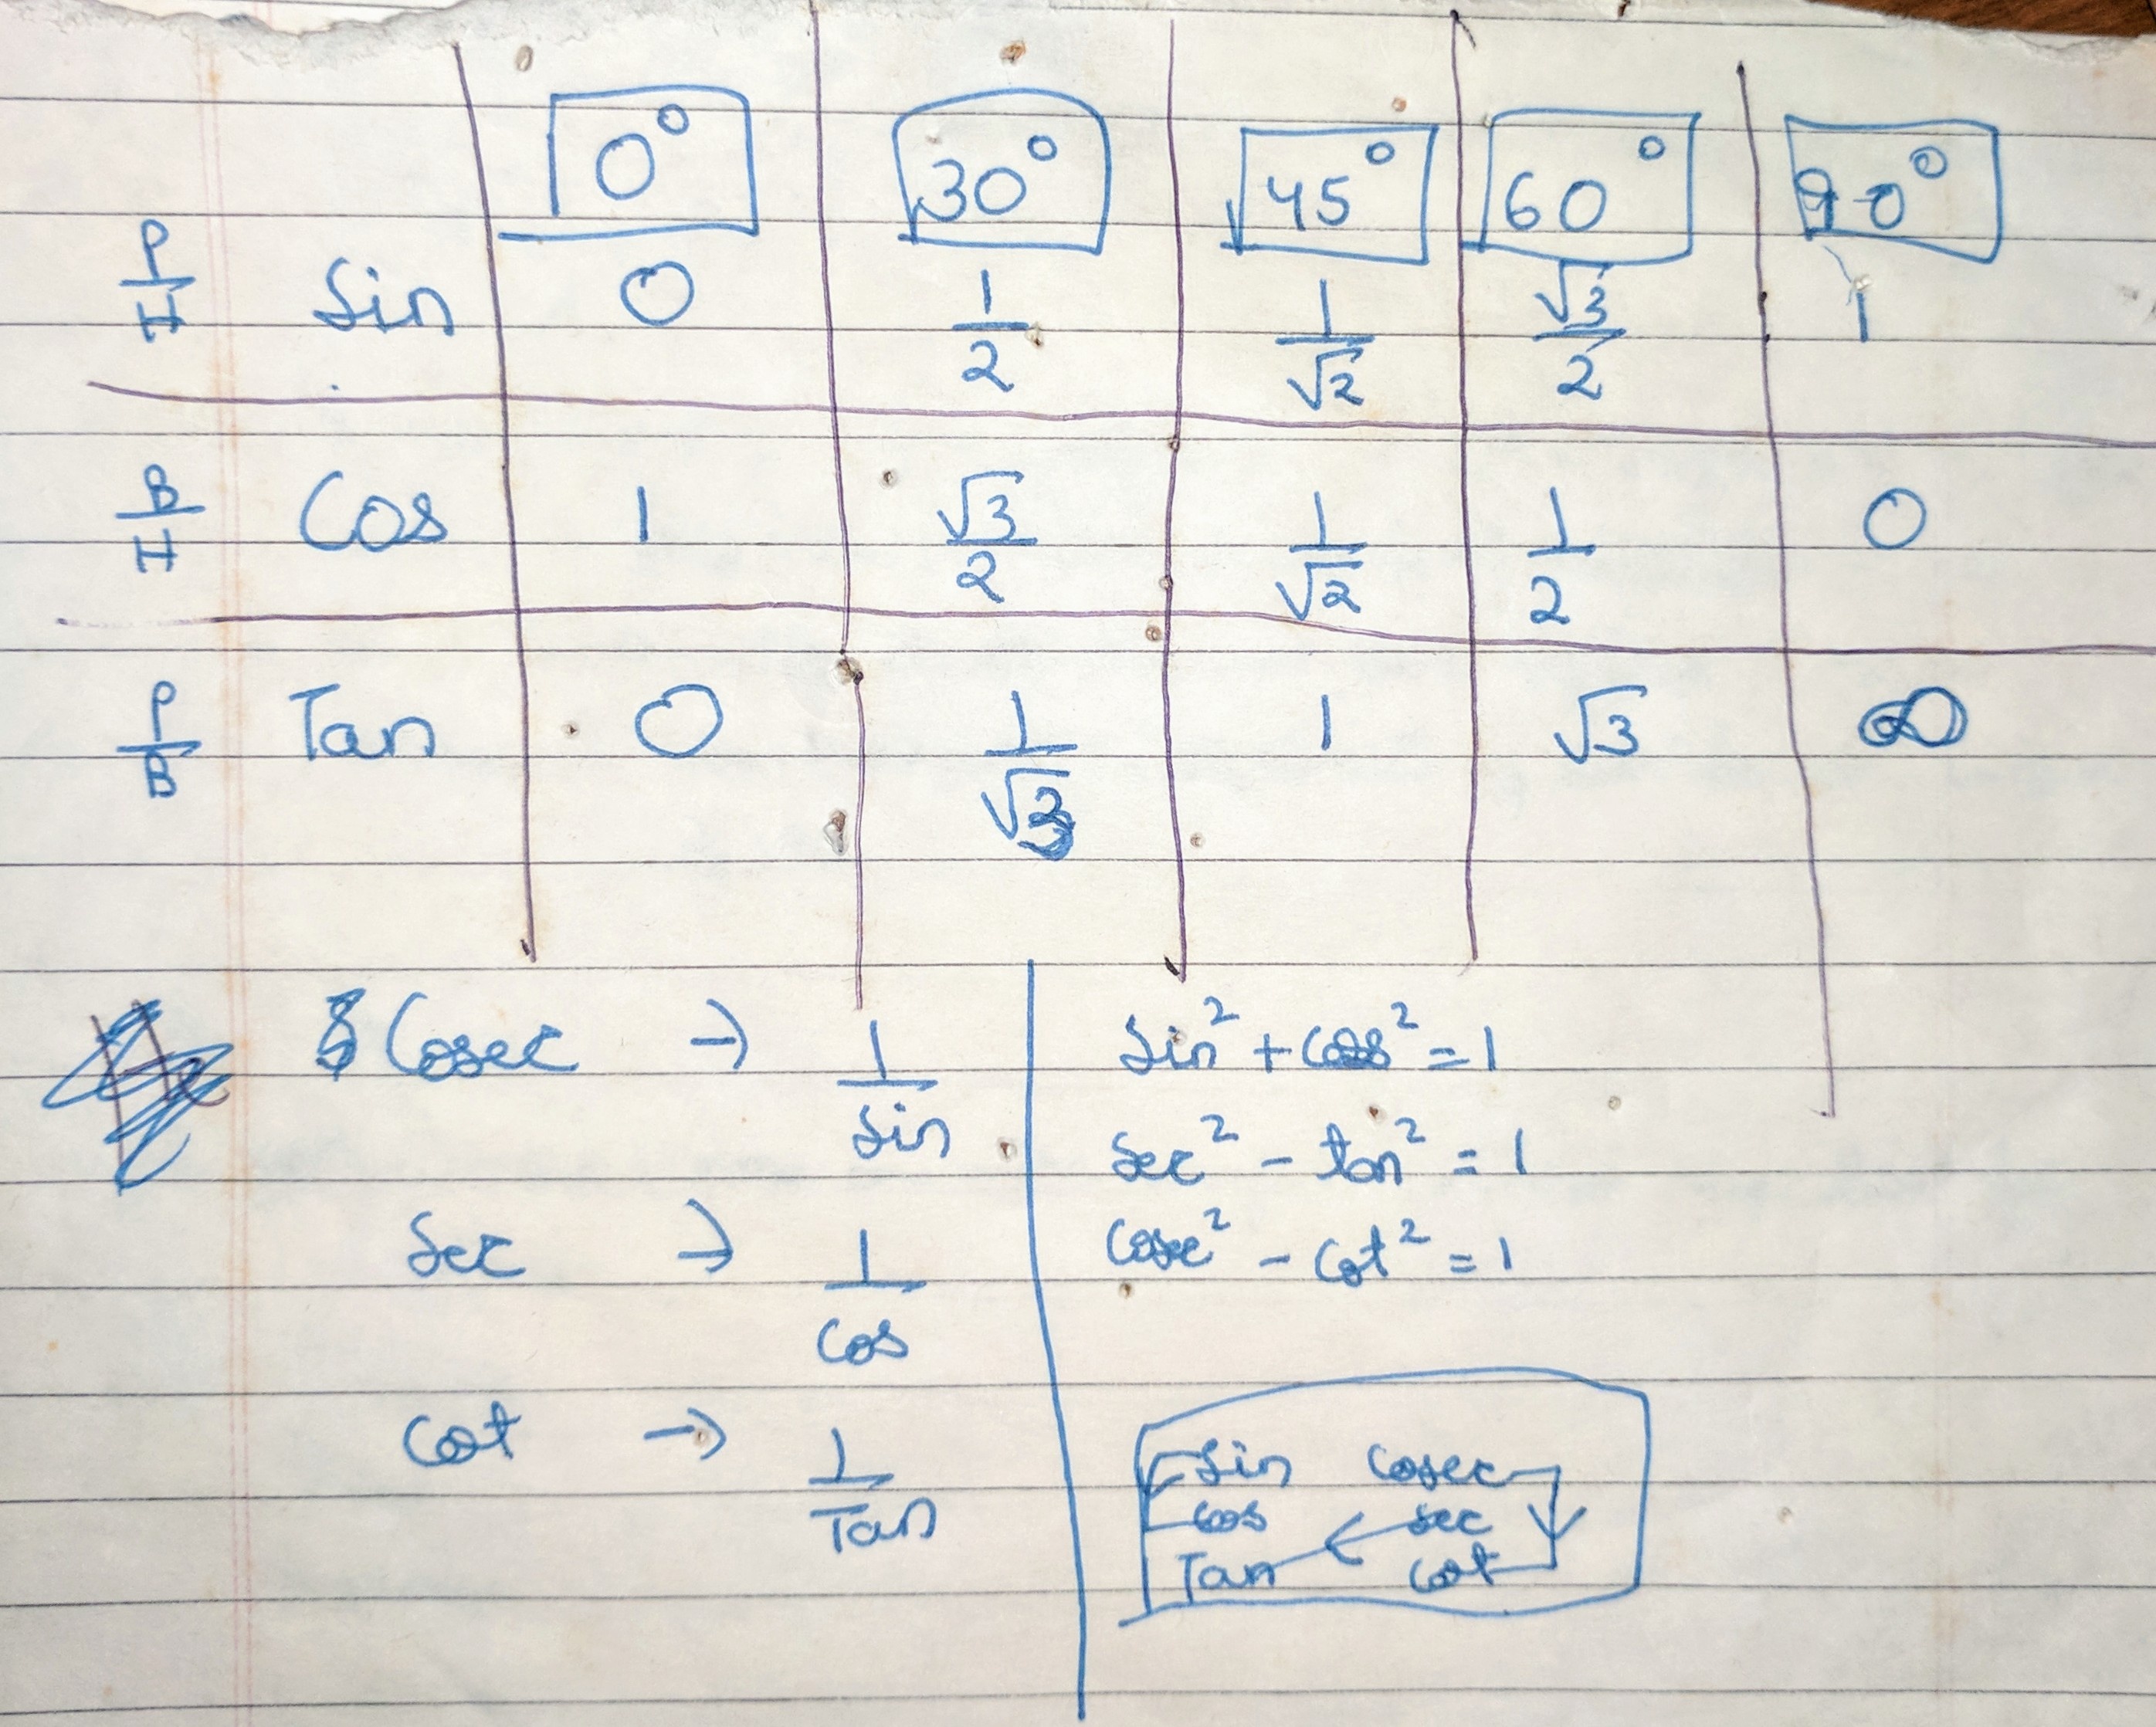 0° 30° 45° 60° 90°
P/H Sin 0 1/2 1/√2 √3/2 1
B/H Cos 1 √3/2 1/√2 1/2 0
P/B Tan 0 1/√3 1 √3 ∞
Cosec → 1/sin
sec → 1/cos
cot → 1/Tan
sin² + cos² = 1
sec² - tan² = 1
cosec² - cot² = 1
sin cosec
cos sec
Tan cot